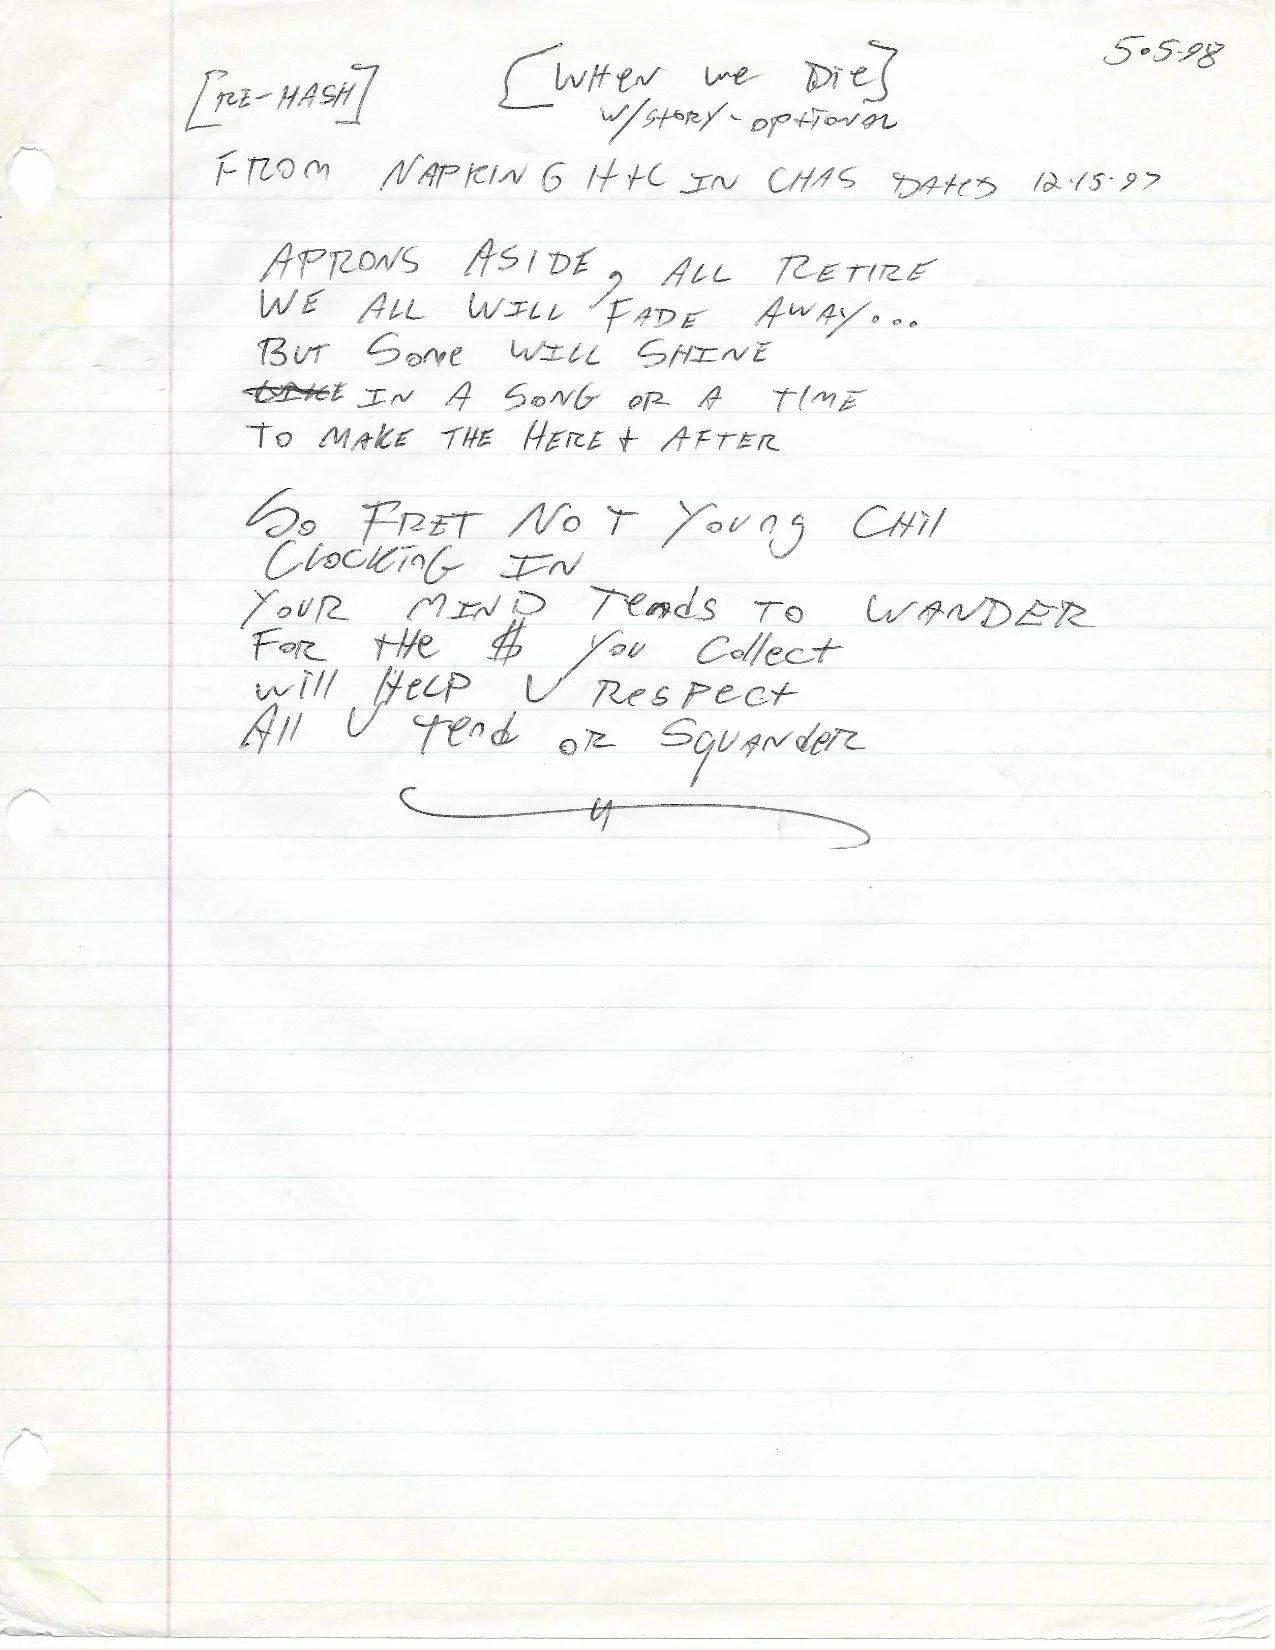 5.5.98
[RE-HASH] [WHEN we DiE]
W/STORY - OPTIONAL
FROM NAPKING H+C IN CHAS DATED 12.15.97
APRONS ASIDE, ALL RETIRE
WE ALL WILL FADE AWAY...
BUT SOME WILL SHINE
IN A SONG OR A TIME
TO MAKE THE HERE + AFTER
So FRET NOT YOUNG CHil
CLOCKING IN
YOUR MIND TENDS TO WANDER
FOR tHe $ You Collect
will HELP U RESPECT
All U tend OR SQUANDER